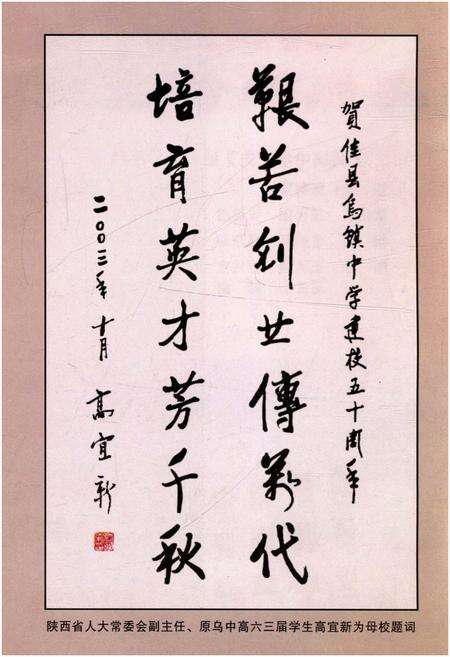 賀佳县烏鎮中学建校五十周年
艱苦创世傳萬代
培育英才芳千秋
二〇〇三年 十月 高宜新
陕西省人大常委会副主任、原乌中高六三届学生高宜新为母校题词